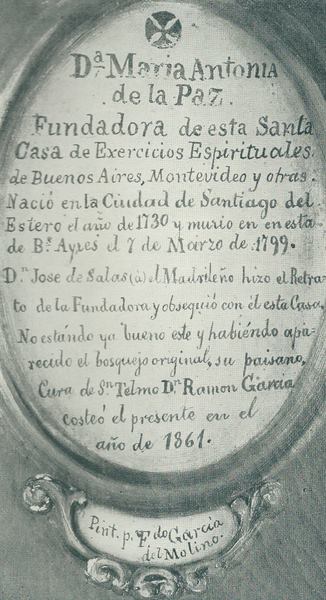 Dª Maria Antonia
de la Paz.
Fundadora de esta Santa
Casa de Exercicios Espirituales
de Buenos Aires, Montevideo y otras.
Nació en la Ciudad de Santiago del
Estero el año de 1730 y murio en en esta
de Bˢ Ayres el 7 de Marzo de 1799.
Dⁿ Jose de Salas (à) el Madrileño hizo el Retra-
to de la Fundadora y obsequió con él esta Casa,
No estándo ya bueno este y habiéndo apa-
recido el bosquejo original, su paisano,
Cura de Sⁿ Telmo Dⁿ Ramon Garcia
costeó el presente en el
año de 1861.
Pint. p. Fdo Garcia
del Molino.